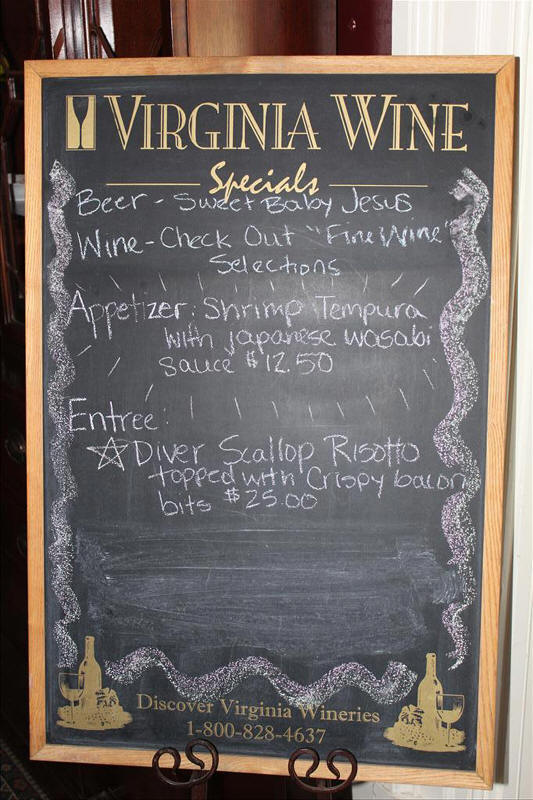 VIRGINIA WINE
Specials
Beer - Sweet Baby Jesus
Wine - Check Out "Fine Wine"
Selections
Appetizer: Shrimp Tempura
with japanese wasabi
sauce $12.50
Entree:
Diver Scallop Risotto
topped with Crispy bacon
bits $25.00
Discover Virginia Wineries
1-800-828-4637